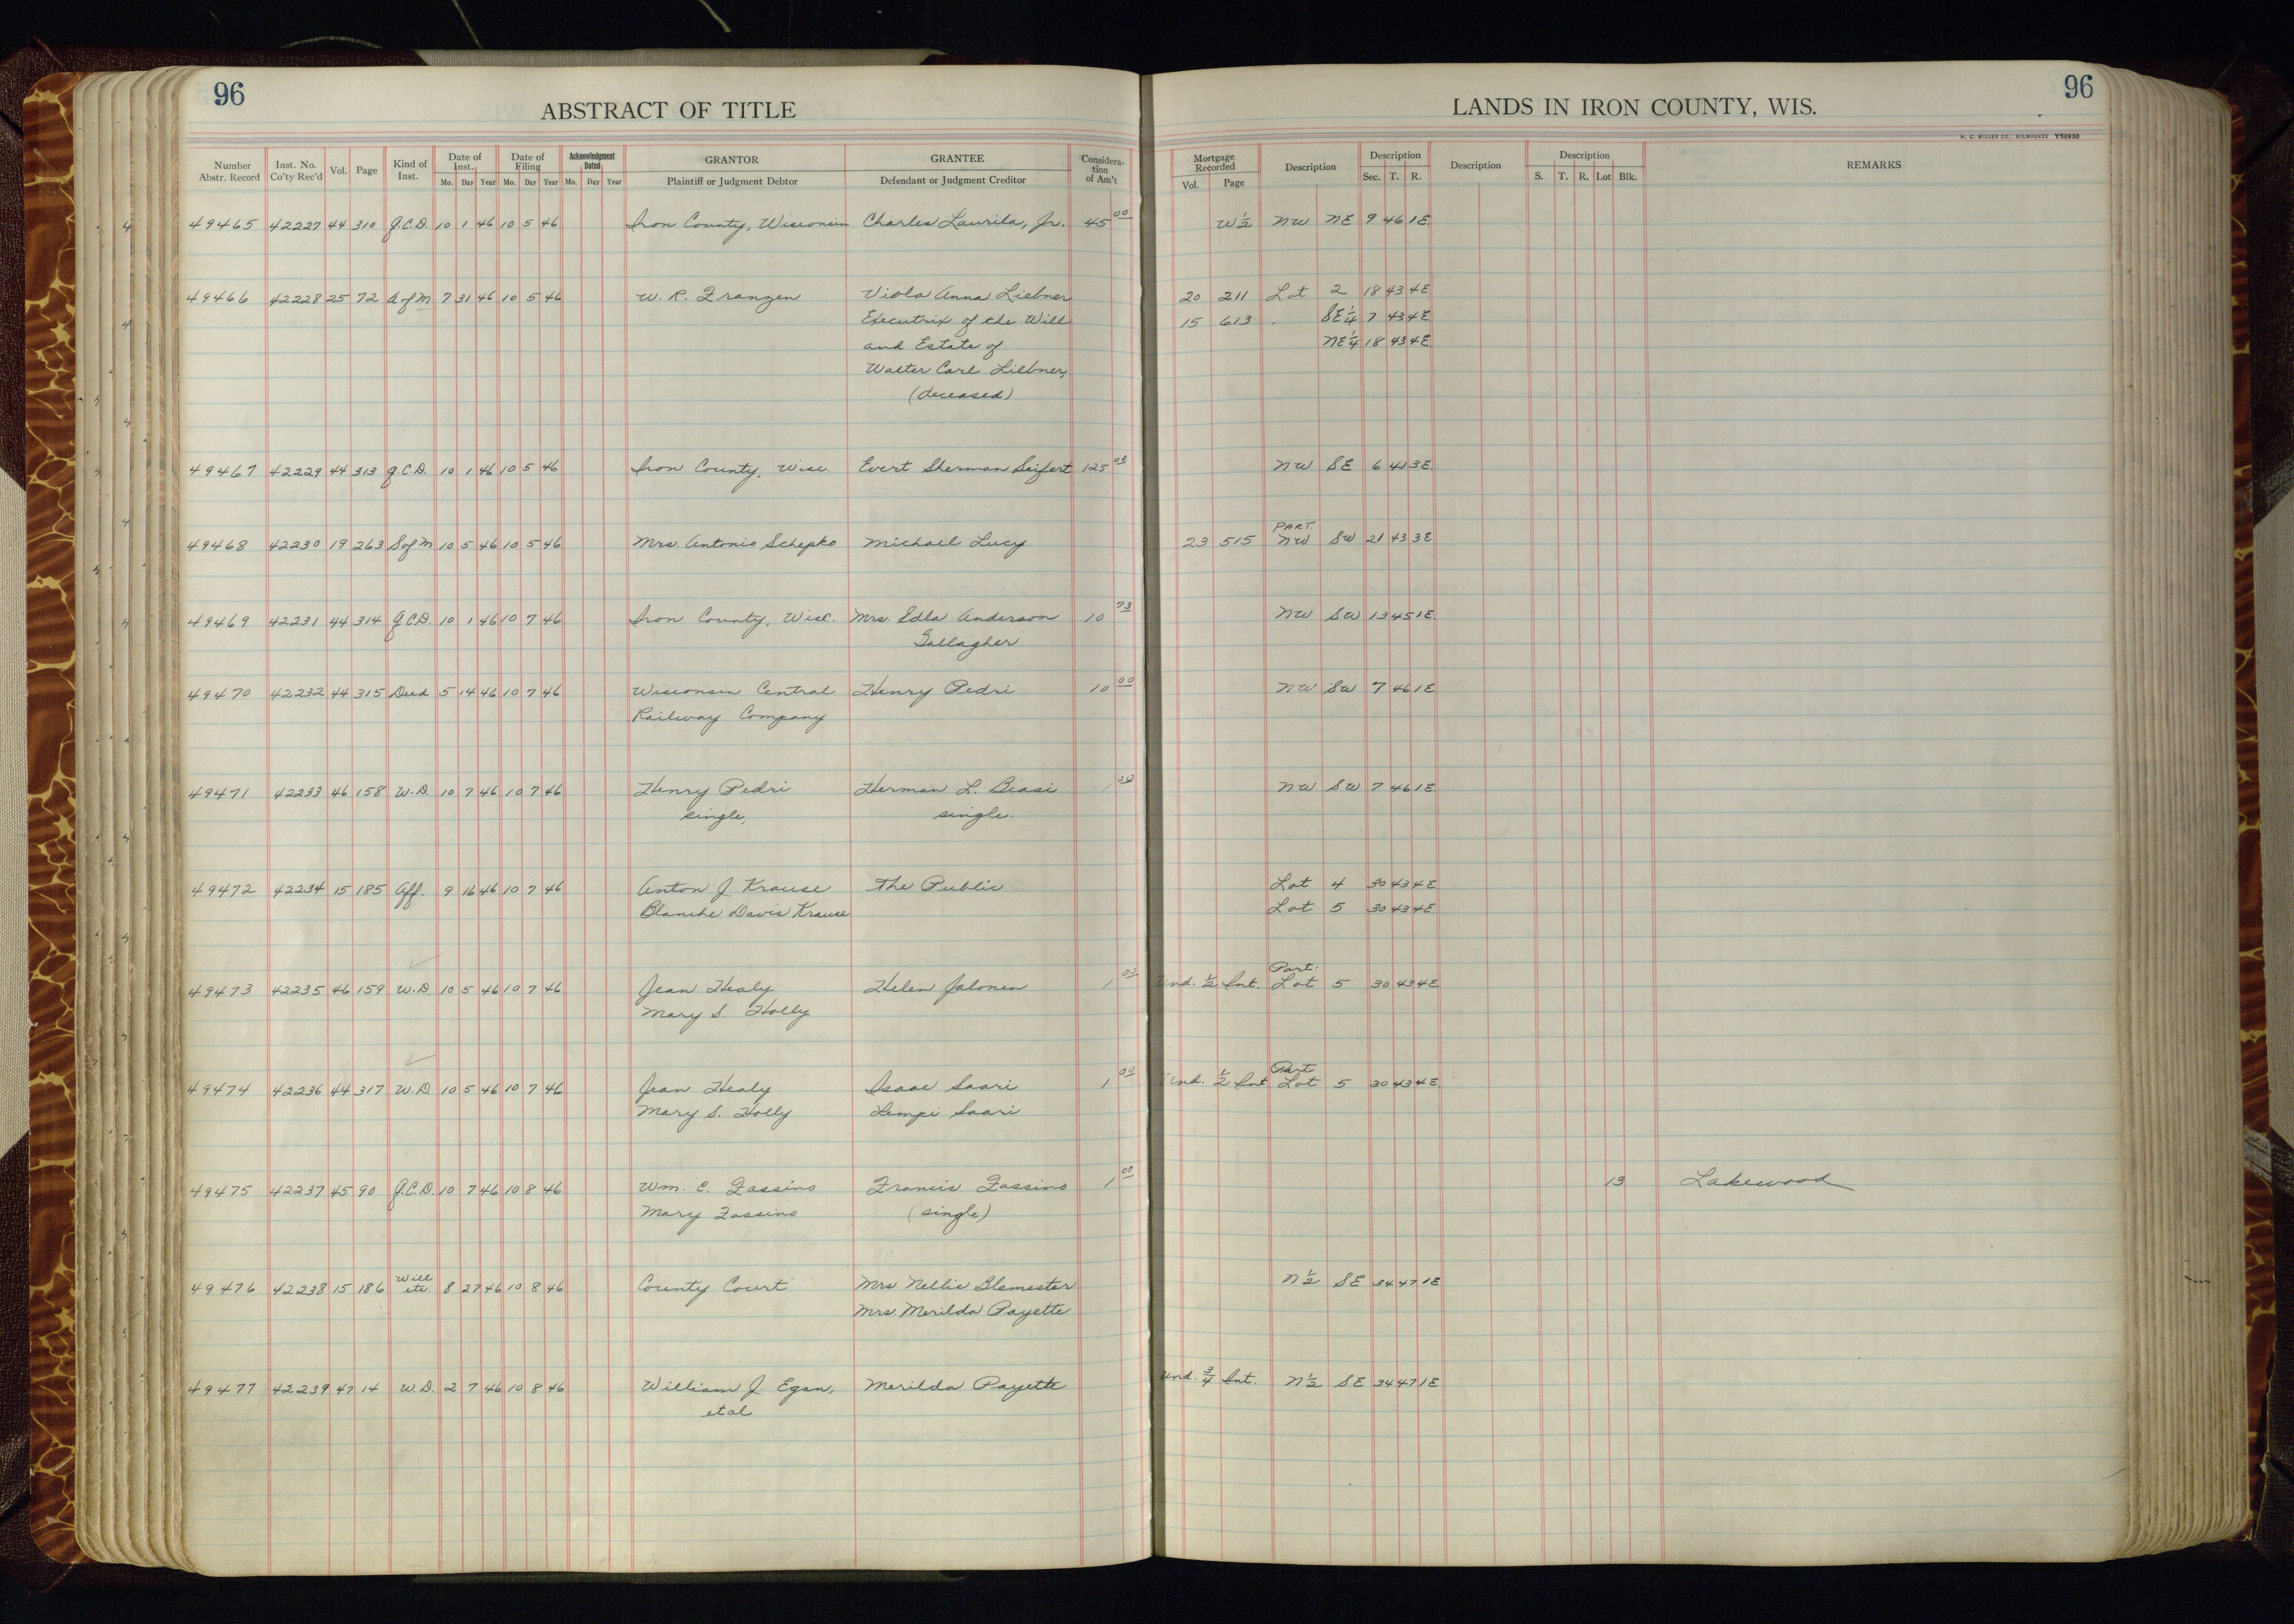 96
ABSTRACT OF TITLE
LANDS IN IRON COUNTY, WIS.
96
H. C. MILLER CO., MILWAUKEE Y50930
Number Abstr. Record Inst. No. Co'ty Rec'd Vol. Page Kind of Inst. Date of Inst. Mo. Day Year Date of Filing Mo. Day Year Acknowledgment Dated Mo. Day Year GRANTOR Plaintiff or Judgment Debtor GRANTEE Defendant or Judgment Creditor Consideration of Am't Mortgage Recorded Vol. Page Description Description Sec. T. R. Description Description S. T. R. Lot Blk. REMARKS
49465 42227 44 310 Q.C.D. 10 1 46 10 5 46 Iron County, Wisconsin Charles Laurila, Jr. 45 00 W 1/2 NW NE 9 46 1E.
49466 42228 25 72 A of M 7 31 46 10 5 46 W. R. Franzen Viola Anna Liebner 20 211 Lot 2 18 43 4E
Executrix of the Will 15 613 SE 1/4 7 43 4E
and Estate of NE 1/4 18 43 4E
Walter Carl Liebner,
(deceased)
49467 42229 44 313 Q.C.D. 10 1 46 10 5 46 Iron County, Wisc. Evert Sherman Seifert 125 00 NW SE 6 41 3E.
PART.
49468 42230 19 263 S of M 10 5 46 10 5 46 Mrs Antonio Schepko Michael Lucy 23 515 NW SW 21 43 3E
49469 42231 44 314 Q.C.D. 10 1 46 10 7 46 Iron County, Wisc. Mrs. Edla Anderson 10 73 NW SW 13 45 1E.
Gallagher
49470 42232 44 315 Deed 5 14 46 10 7 46 Wisconsin Central Henry Pedri 10 00 NW SW 7 46 1E
Railway Company
49471 42233 46 158 W.D. 10 7 46 10 7 46 Henry Pedri Herman L. Biasi 1 00 NW SW 7 46 1E.
single, single.
49472 42234 15 185 Aff. 9 16 46 10 7 46 Anton J. Krause The Public Lot 4 30 43 4E
Blanche Davis Krause Lot 5 30 43 4E
Part.
49473 42235 46 159 W.D. 10 5 46 10 7 46 Jean Healy Helen Jalonen 1 00 Und. 1/2 Int. Lot 5 30 43 4E
Mary S. Holly
Part
49474 42236 44 317 W.D. 10 5 46 10 7 46 Jean Healy Isaac Saari 1 00 Und. 1/2 Int Lot 5 30 43 4E.
Mary S. Holly Lempi Saari
49475 42237 45 90 Q.C.D. 10 7 46 10 8 46 Wm. C. Fassino Francis Fassino 1 00 13 Lakewood
Mary Fassino (single)
49476 42238 15 186 Will etc. 8 27 46 10 8 46 County Court Mrs Nellie Blemester N 1/2 SE 34 47 1E
Mrs. Merilda Payette
49477 42239 47 14 W.D. 2 7 46 10 8 46 William J. Egan, Merilda Payette Und. 3/4 Int. N 1/2 SE 34 47 1E
et al